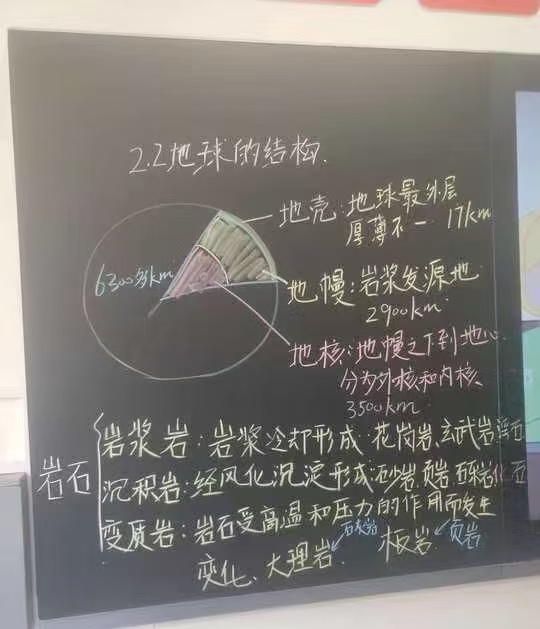 2.2地球的结构.
地壳:地球最外层
厚薄不一 17km
6300多km
地幔:岩浆发源地
2900km
地核:地幔之下到地心
分为外核和内核
3500km
岩石
岩浆岩:岩浆冷却形成 花岗岩、玄武岩 浮石
沉积岩:经风化沉淀形成:砂岩、页岩 化石
变质岩:岩石受高温和压力的作用而发生
变化、大理岩 石灰岩 板岩 页岩